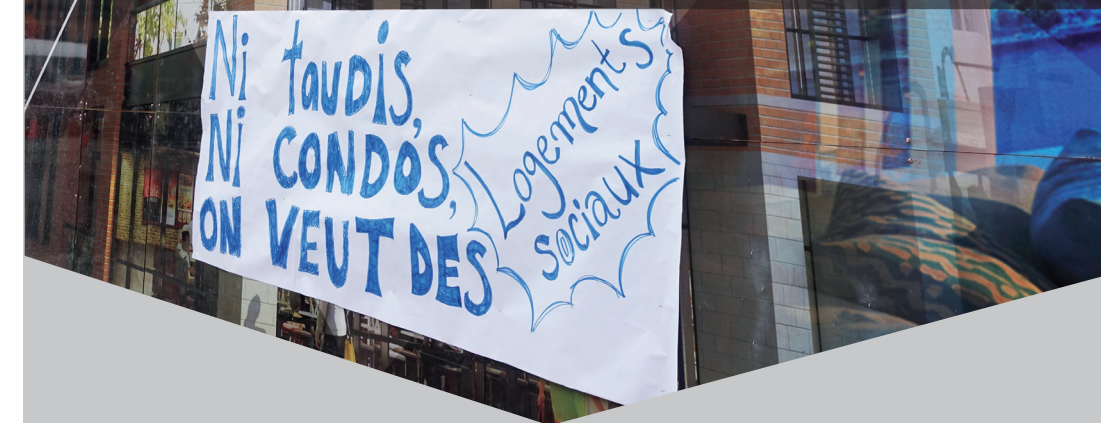 Ni taudis,
Ni CONDOS,
ON VEUT DES
Logements
sociaux